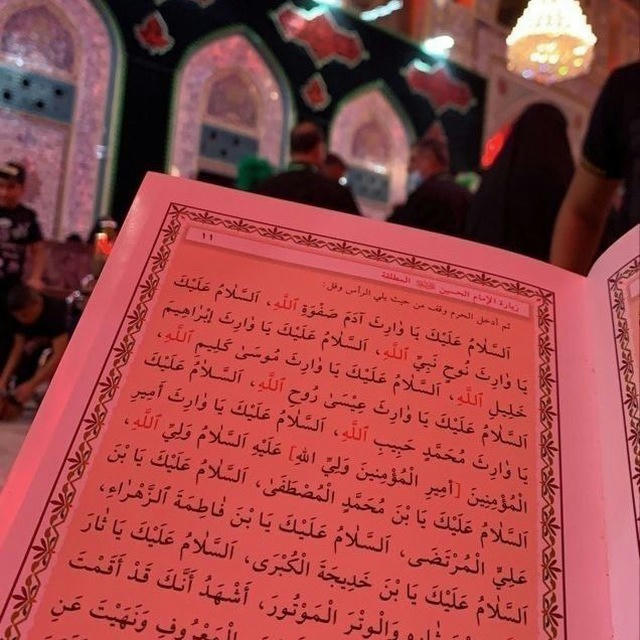 ١١
زيارة الإمام الحسين المطلقة
ثم أدخل الحرم وقف من حيث يلي الرأس وقل:
اَلسَّلامُ عَلَيْكَ يَا وٰارِثَ آدَمَ صَفْوَةِ اللّٰهِ، اَلسَّلامُ عَلَيْكَ
يَا وٰارِثَ نُوحٍ نَبِيِّ اللّٰهِ، اَلسَّلامُ عَلَيْكَ يَا وٰارِثَ إِبْرٰاهِيمَ
خَلِيلِ اللّٰهِ، اَلسَّلامُ عَلَيْكَ يَا وٰارِثَ مُوسَىٰ كَلِيمِ اللّٰهِ،
اَلسَّلامُ عَلَيْكَ يَا وٰارِثَ عِيسَىٰ رُوحِ اللّٰهِ، اَلسَّلامُ عَلَيْكَ
يَا وٰارِثَ مُحَمَّدٍ حَبِيبِ اللّٰهِ، اَلسَّلامُ عَلَيْكَ يَا وٰارِثَ أَمِيرِ
الْمُؤْمِنِينَ [أَمِيرِ الْمُؤْمِنِينَ وَلِيِّ اللهِ] عَلَيْهِ السَّلامُ وَلِيِّ اللّٰهِ،
اَلسَّلامُ عَلَيْكَ يَا بْنَ مُحَمَّدٍ الْمُصْطَفَىٰ، اَلسَّلامُ عَلَيْكَ يَا بْنَ
عَلِيٍّ الْمُرْتَضَى، اَلسَّلامُ عَلَيْكَ يَا بْنَ فٰاطِمَةَ الزَّهْرٰاءِ،
اَلسَّلامُ عَلَيْكَ يَا بْنَ خَدِيجَةَ الْكُبْرَى، اَلسَّلامُ عَلَيْكَ يَا ثٰارَ
وَالْوِتْرَ الْمَوْتُورَ، أَشْهَدُ أَنَّكَ قَدْ أَقَمْتَ
الْمَعْرُوفِ وَنَهَيْتَ عَنِ